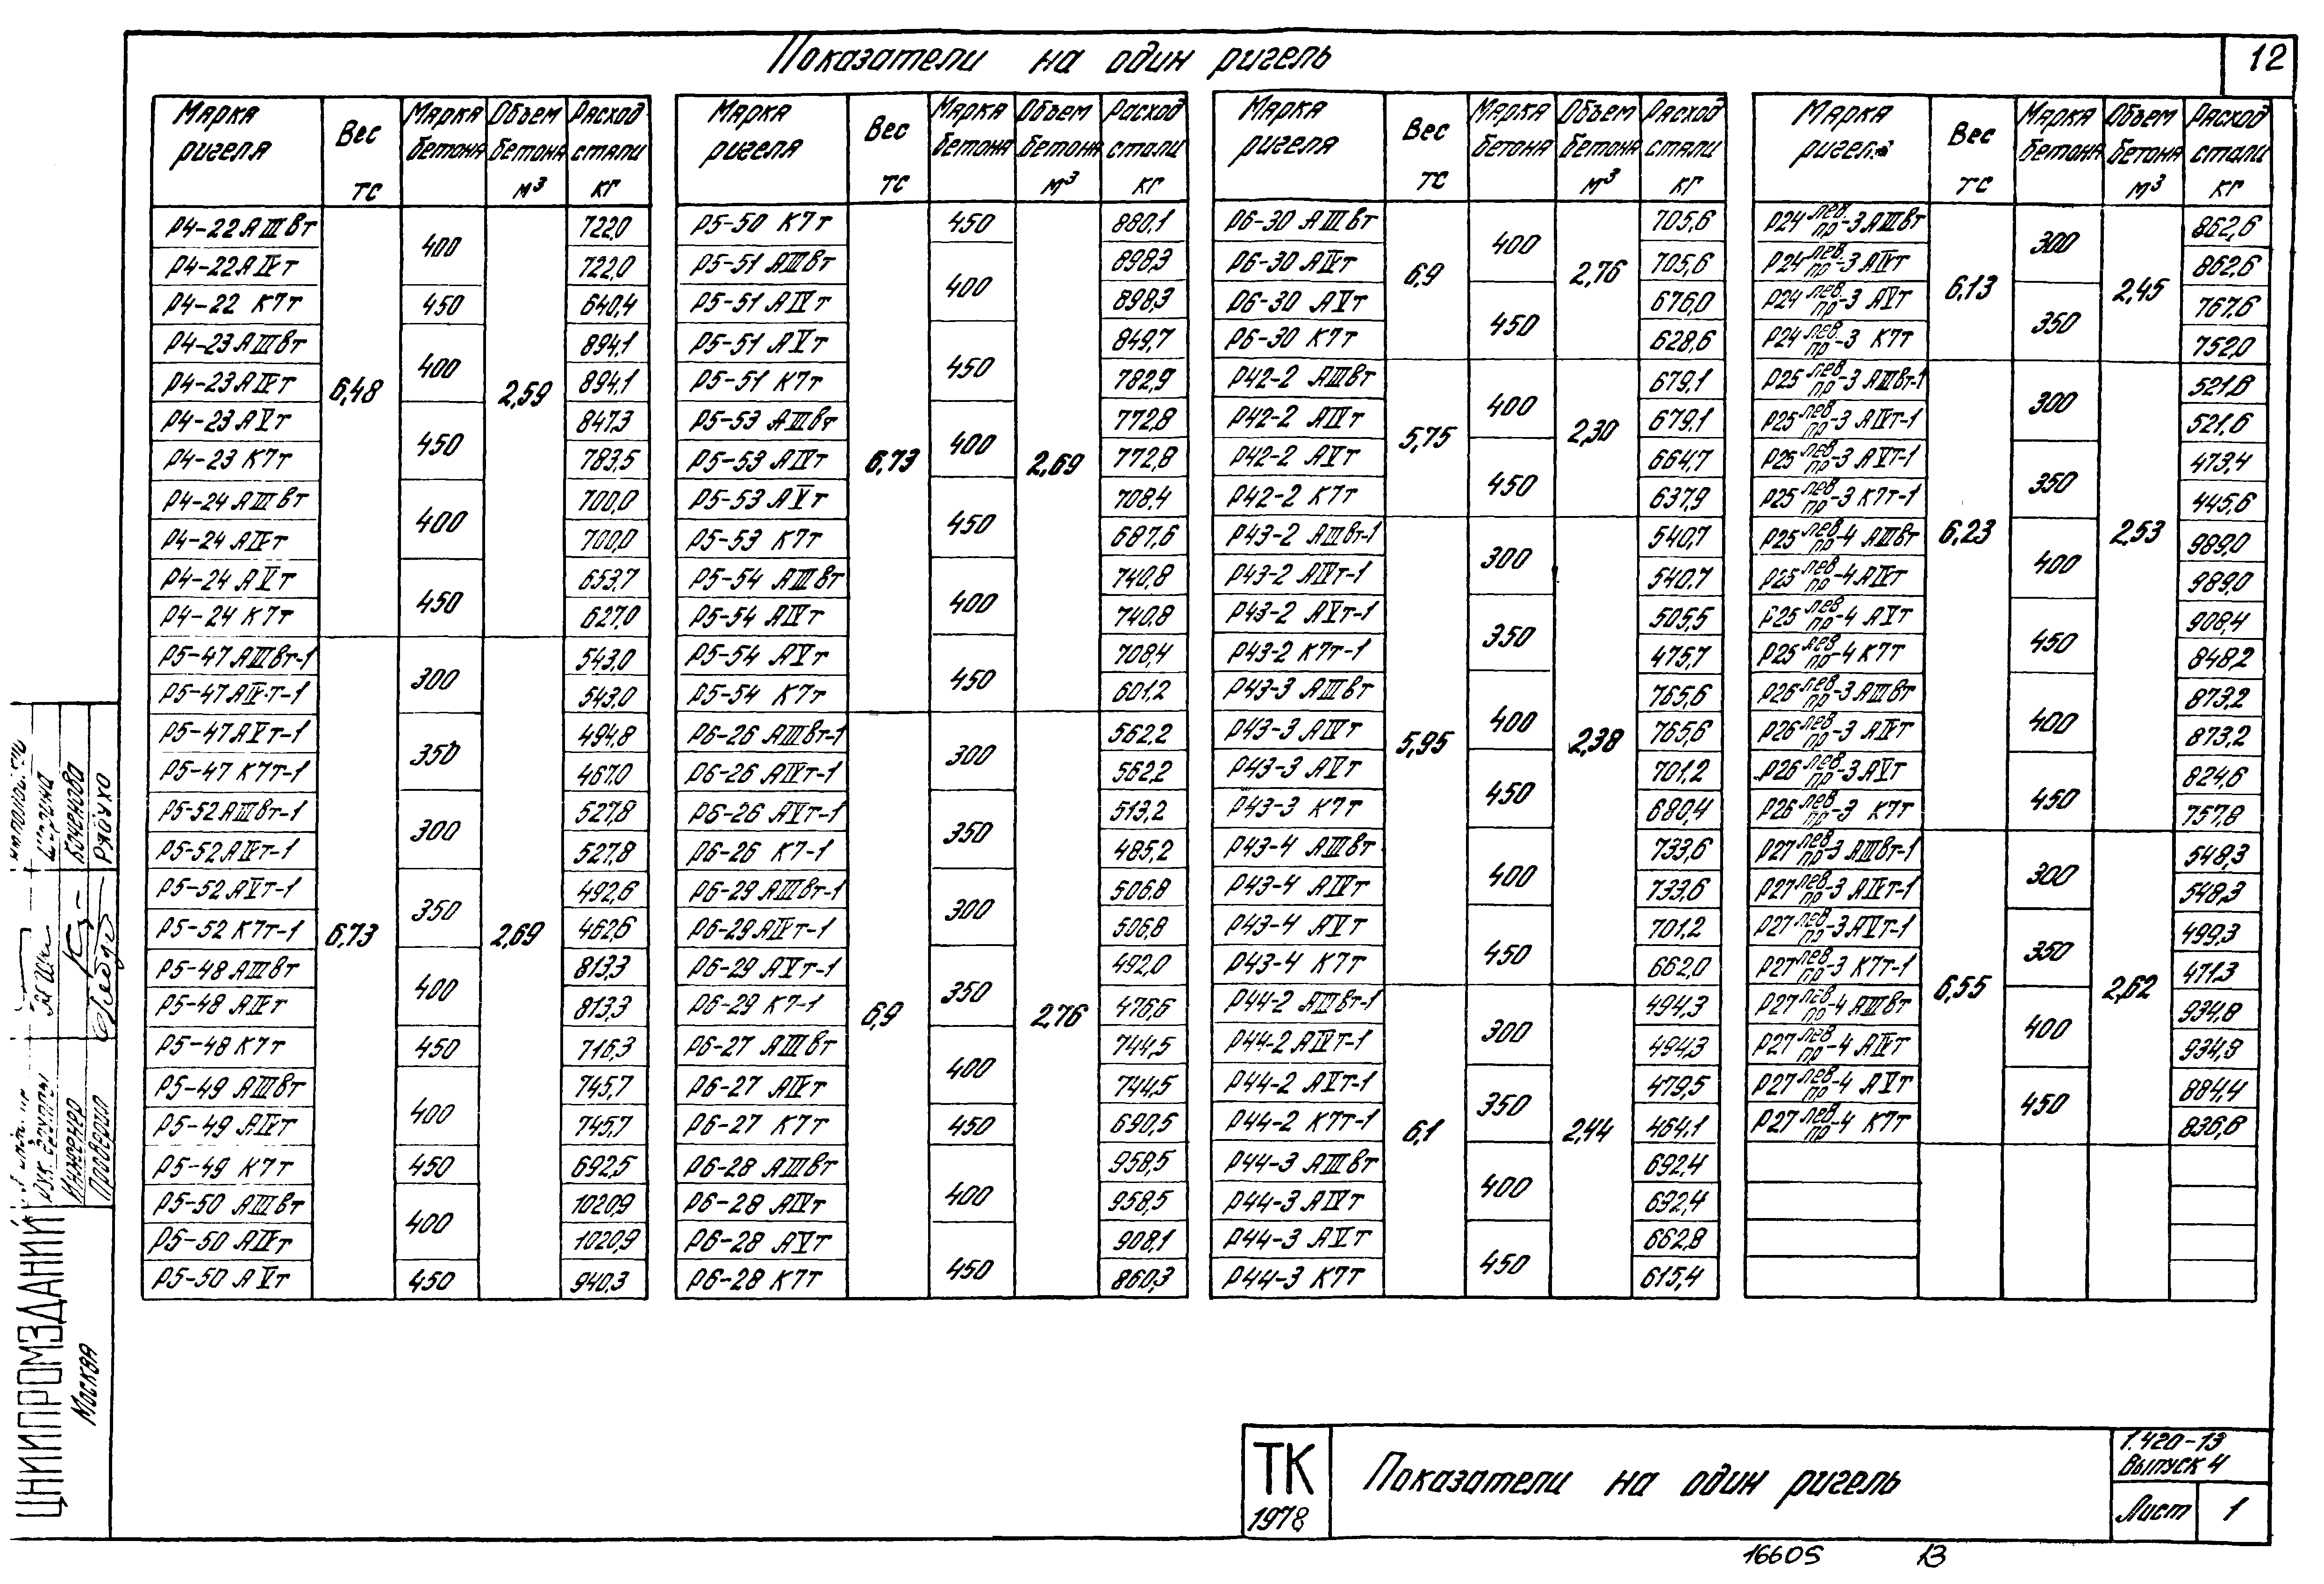 Показатели на один ригель
12
Марка ригеля Вес тс Марка бетона Объем бетона м³ Расход стали кг
Р4-22 АIIIвт 6,48 400 2,59 722,0
Р4-22 АIVт 722,0
Р4-22 К7т 450 640,4
Р4-23 АIIIвт 400 894,1
Р4-23 АIVт 894,1
Р4-23 АVт 450 847,3
Р4-23 К7т 783,5
Р4-24 АIIIвт 400 700,0
Р4-24 АIVт 700,0
Р4-24 АVт 450 653,7
Р4-24 К7т 627,0
Р5-47 АIIIвт-1 6,73 300 2,69 543,0
Р5-47 АIVт-1 543,0
Р5-47 АVт-1 350 494,8
Р5-47 К7т-1 467,0
Р5-52 АIIIвт-1 300 527,8
Р5-52 АIVт-1 527,8
Р5-52 АVт-1 350 492,6
Р5-52 К7т-1 462,6
Р5-48 АIIIвт 400 813,3
Р5-48 АIVт 813,3
Р5-48 К7т 450 716,3
Р5-49 АIIIвт 400 745,7
Р5-49 АIVт 745,7
Р5-49 К7т 450 692,5
Р5-50 АIIIвт 400 1020,9
Р5-50 АIVт 1020,9
Р5-50 АVт 450 940,3
Марка ригеля Вес тс Марка бетона Объем бетона м³ Расход стали кг
Р5-50 К7т 6,73 450 2,69 880,1
Р5-51 АIIIвт 400 898,3
Р5-51 АIVт 898,3
Р5-51 АVт 450 849,7
Р5-51 К7т 782,9
Р5-53 АIIIвт 400 772,8
Р5-53 АIVт 772,8
Р5-53 АVт 450 708,4
Р5-53 К7т 687,6
Р5-54 АIIIвт 400 740,8
Р5-54 АIVт 740,8
Р5-54 АVт 450 708,4
Р5-54 К7т 601,2
Р6-26 АIIIвт-1 6,9 300 2,76 562,2
Р6-26 АIVт-1 562,2
Р6-26 АVт-1 350 513,2
Р6-26 К7-1 485,2
Р6-29 АIIIвт-1 300 506,8
Р6-29 АIVт-1 506,8
Р6-29 АVт-1 350 492,0
Р6-29 К7-1 476,6
Р6-27 АIIIвт 400 744,5
Р6-27 АIVт 744,5
Р6-27 К7т 450 690,5
Р6-28 АIIIвт 400 958,5
Р6-28 АIVт 958,5
Р6-28 АVт 450 908,1
Р6-28 К7т 860,3
Марка ригеля Вес тс Марка бетона Объем бетона м³ Расход стали кг
Р6-30 АIIIвт 6,9 400 2,76 705,6
Р6-30 АIVт 705,6
Р6-30 АVт 450 676,0
Р6-30 К7т 628,6
Р42-2 АIIIвт 5,75 400 2,30 679,1
Р42-2 АIVт 679,1
Р42-2 АVт 450 664,7
Р42-2 К7т 637,9
Р43-2 АIIIвт-1 5,95 300 2,38 540,7
Р43-2 АIVт-1 540,7
Р43-2 АVт-1 350 505,5
Р43-2 К7т-1 475,7
Р43-3 АIIIвт 400 765,6
Р43-3 АIVт 765,6
Р43-3 АVт 450 701,2
Р43-3 К7т 680,4
Р43-4 АIIIвт 400 733,6
Р43-4 АIVт 733,6
Р43-4 АVт 450 701,2
Р43-4 К7т 662,0
Р44-2 АIIIвт-1 6,1 300 2,44 494,3
Р44-2 АIVт-1 494,3
Р44-2 АVт-1 350 479,5
Р44-2 К7т-1 464,1
Р44-3 АIIIвт 400 692,4
Р44-3 АIVт 692,4
Р44-3 АVт 450 662,8
Р44-3 К7т 615,4
Марка ригеля Вес тс Марка бетона Объем бетона м³ Расход стали кг
Р24 лев/пр-3 АIIIвт 6,13 300 2,45 862,6
Р24 лев/пр-3 АIVт 862,6
Р24 лев/пр-3 АVт 350 767,6
Р24 лев/пр-3 К7т 752,0
Р25 лев/пр-3 АIIIвт-1 6,23 300 2,53 521,6
Р25 лев/пр-3 АIVт-1 521,6
Р25 лев/пр-3 АVт-1 350 473,4
Р25 лев/пр-3 К7т-1 445,6
Р25 лев/пр-4 АIIIвт 400 989,0
Р25 лев/пр-4 АIVт 989,0
Р25 лев/пр-4 АVт 450 908,4
Р25 лев/пр-4 К7т 848,2
Р26 лев/пр-3 АIIIвт 400 873,2
Р26 лев/пр-3 АIVт 873,2
Р26 лев/пр-3 АVт 450 824,6
Р26 лев/пр-3 К7т 757,8
Р27 лев/пр-3 АIIIвт-1 6,55 300 2,62 548,3
Р27 лев/пр-3 АIVт-1 548,3
Р27 лев/пр-3 АVт-1 350 499,3
Р27 лев/пр-3 К7т-1 471,3
Р27 лев/пр-4 АIIIвт 400 934,8
Р27 лев/пр-4 АIVт 934,8
Р27 лев/пр-4 АVт 450 884,4
Р27 лев/пр-4 К7т 836,6
ЦНИИПРОМЗДАНИЙ
Москва
Рук. группы
Инженер Коченова
Проверил Рябухо
ТК
1978
Показатели на один ригель
1.420-13
Выпуск 4
Лист 1
16605 13